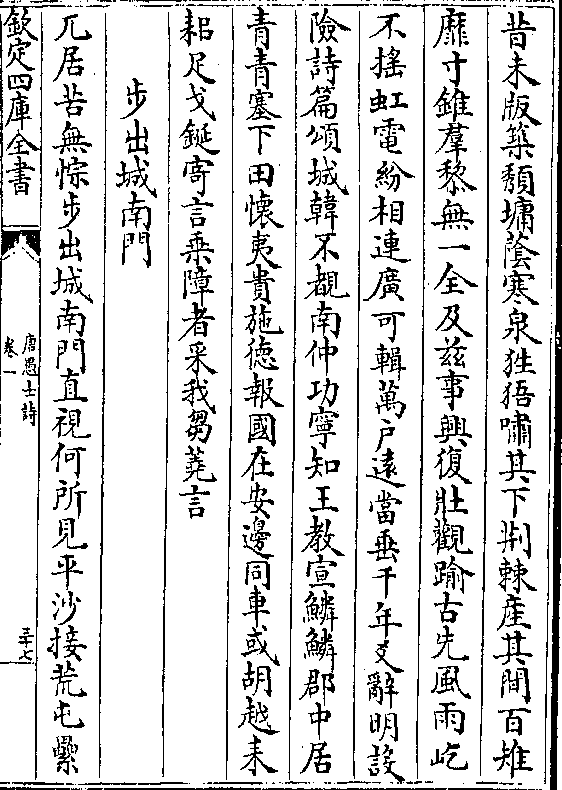 昔未版築頽墉蔭寒泉狌狧嘯其下荆棘産其間百雉
靡寸雖羣黎無一全及兹事興復壯觀踰古先風雨屹
不揺虹電紛相連廣可輯萬户逺當垂千年爻辭明設
險詩篇頌城韓不覩南仲功寧知王教宣鱗鱗郡中居
青青塞下田懷夷貴施徳報國在安邊同車或胡越耒
耜足戈鋋寄言乗障者采我芻蕘言
步出城南門
兀居苦無悰步出城南門直視何所見平沙接荒屯纍
欽定四庫全書
唐愚士詩
卷一
三十七